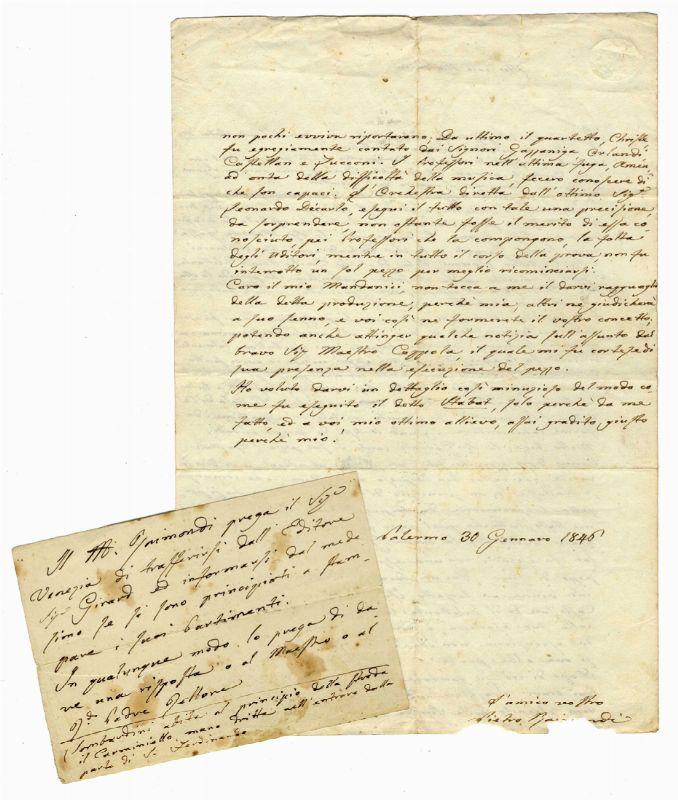 non pochi evviva riportarono. Da ultimo il quartetto, Christe
fu egregiamente cantato dai Signori Gazzaniga Orlandi
Castellan e Zucconi. I Professori nell'ultima fuga, Amen
ad onta della difficoltà della musica, fecero conoscere di
che son capaci. L'Orchestra diretta dall'ottimo Sigr.
Leonardo Decarlo, eseguì il tutto con tale una precisione,
da sorprendere, non ostante fosse il merito di essa co,
nosciuto, pei Professori che la compongono, la folla
degli Uditori, mentre in tutto il corso della prova, non fu
interrotto un sol pezzo per meglio ricominciarsi.
Caro il mio Mandanici, non tocca a me il darvi ragguaglio
della detta produzione, perchè mia, altri ne giudicherà
a suo senno, e voi così ne formerete il vostro concetto,
potendo anche attinger qualche notizia sull'assunto dal
bravo Sigr Maestro Coppola, il quale mi fu cortese di
sua presenza nella esecuzione del pezzo.
Ho voluto darvi un dettaglio così minuzioso del modo co,
me fu eseguito il detto Stabat, solo perchè da me
fatto, ed a voi, mio ottimo allievo, assai gradito, giusto
perchè mio.
Palermo 30 Gennaro 1846
L'amico vostro
Pietro
Il M. Raimondi prega il Sigr
Venezia di trasferirsi dall'Editore
Sigr Girard ed informarsi dal mede
simo se si sono principiati a stam,
pare i suoi partimenti.
In qualunque modo lo prega di da
re una risposta o al Maestro o al
Rdo Padre Bellone
Lombardini abita al principio della strada
il Carminiello mano dritta nell'entrare dalla
parte di S. Ferdinando